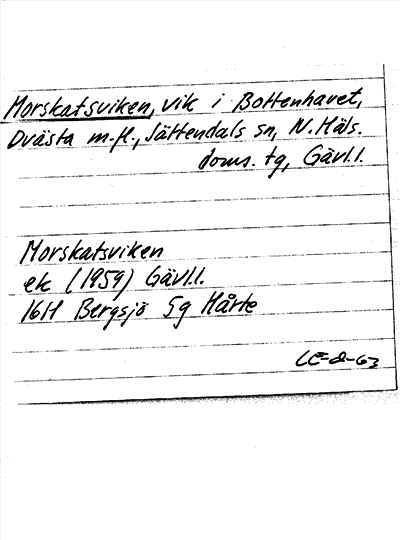 Morskatsviken, vik i Bottenhavet,
Dvästa m.fl., Jättendals sn, N. Häls.
doms. tg, Gävl.l.
Morskatsviken
ek (1959) Gävl.l.
16H Bergsjö 5g Hårte